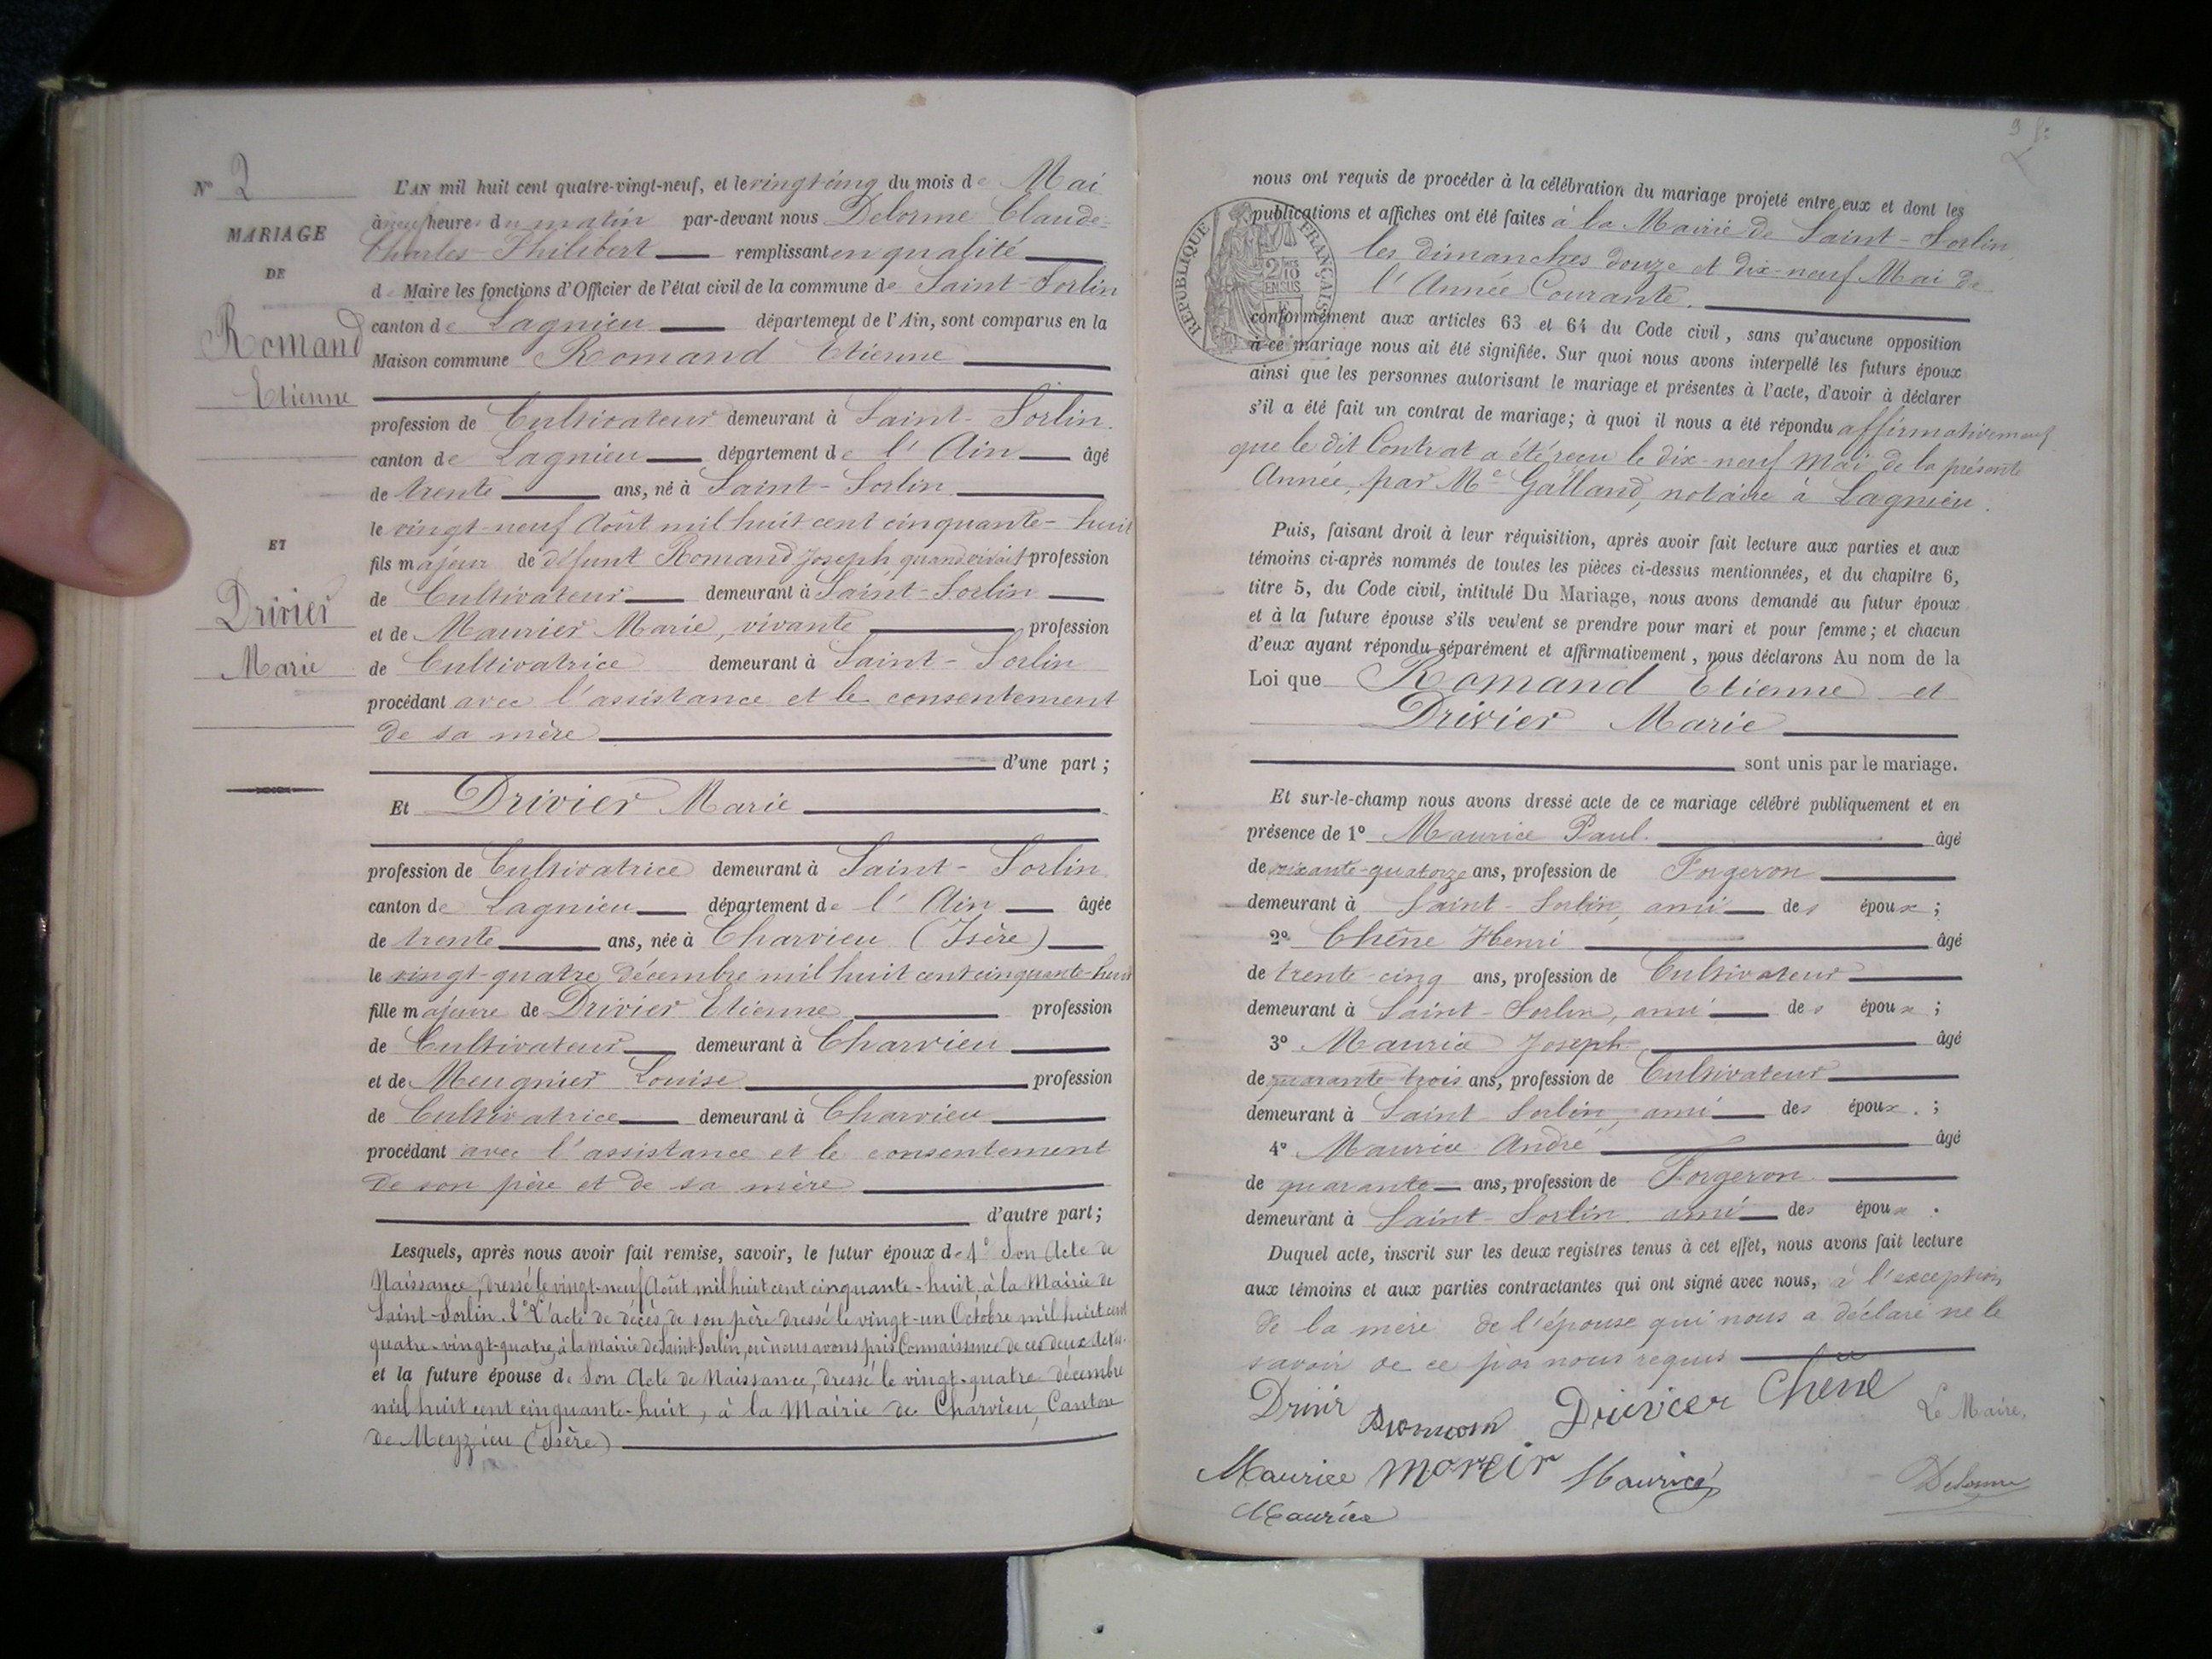 N° 2
MARIAGE
DE
Romand
Etienne
ET
Drivier
Marie
L'AN mil huit cent quatre-vingt-neuf, et le vingt-cinq du mois de Mai
à neuf heures du matin par-devant nous Delorme Claude-
Charles-Philibert remplissant en qualité
de Maire les fonctions d'Officier de l'état civil de la commune de Saint-Sorlin
canton de Lagnieu département de l'Ain, sont comparus en la
Maison commune Romand Etienne
profession de Cultivateur demeurant à Saint-Sorlin.
canton de Lagnieu département de l'Ain âgé
de trente ans, né à Saint-Sorlin
le vingt-neuf Août mil huit cent cinquante-huit
fils majeur de défunt Romand Joseph, quand vivait profession
de Cultivateur demeurant à Saint-Sorlin
et de Maurier Marie, vivante profession
de Cultivatrice demeurant à Saint-Sorlin
procédant avec l'assistance et le consentement
de sa mère
d'une part ;
Et Drivier Marie
profession de Cultivatrice demeurant à Saint-Sorlin
canton de Lagnieu département de l'Ain âgée
de trente ans, née à Charvieu (Isère)
le vingt-quatre décembre mil huit cent cinquante-huit
fille majeure de Drivier Etienne profession
de Cultivateur demeurant à Charvieu
et de Meugnier Louise profession
de Cultivatrice demeurant à Charvieu
procédant avec l'assistance et le consentement
de son père et de sa mère
d'autre part;
Lesquels, après nous avoir fait remise, savoir, le futur époux de 1° Son Acte de
Naissance, dressé le vingt-neuf Août mil huit cent cinquante-huit, à la Mairie de
Saint-Sorlin. 2° L'acte de décès de son père dressé le vingt-un Octobre mil huit cent
quatre-vingt-quatre, à la Mairie de Saint-Sorlin, où nous avons pris Connaissance de ces deux Actes.
et la future épouse de Son Acte de Naissance, dressé le vingt-quatre décembre
mil huit cent cinquante-huit, à la Mairie de Charvieu, Canton
de Meyzieu (Isère)
nous ont requis de procéder à la célébration du mariage projeté entre eux et dont les
publications et affiches ont été faites à la Mairie de Saint-Sorlin,
les dimanches douze et dix-neuf Mai de
l'Année Courante.
RÉPUBLIQUE FRANÇAISE
conformément aux articles 63 et 64 du Code civil, sans qu'aucune opposition
à ce mariage nous ait été signifiée. Sur quoi nous avons interpellé les futurs époux
ainsi que les personnes autorisant le mariage et présentes à l'acte, d'avoir à déclarer
s'il a été fait un contrat de mariage; à quoi il nous a été répondu affirmativement
que le dit Contrat a été reçu le dix-neuf Mai de la présente
Année, par Me Galland, notaire à Lagnieu.
Puis, faisant droit à leur réquisition, après avoir fait lecture aux parties et aux
témoins ci-après nommés de toutes les pièces ci-dessus mentionnées, et du chapitre 6,
titre 5, du Code civil, intitulé Du Mariage, nous avons demandé au futur époux
et à la future épouse s'ils veulent se prendre pour mari et pour femme; et chacun
d'eux ayant répondu séparément et affirmativement, nous déclarons Au nom de la
Loi que Romand Etienne et
Drivier Marie
sont unis par le mariage.
Et sur-le-champ nous avons dressé acte de ce mariage célébré publiquement et en
présence de 1° Maurice Paul. âgé
de soixante-quatorze ans, profession de Forgeron
demeurant à Saint-Sorlin, ami des époux ;
2° Chêne Henri âgé
de trente-cinq ans, profession de Cultivateur
demeurant à Saint-Sorlin, ami des époux ;
3° Maurice Joseph âgé
de quarante-trois ans, profession de Cultivateur
demeurant à Saint-Sorlin, ami des époux ;
4° Maurice André âgé
de quarante ans, profession de Forgeron
demeurant à Saint-Sorlin ami des époux.
Duquel acte, inscrit sur les deux registres tenus à cet effet, nous avons fait lecture
aux témoins et aux parties contractantes qui ont signé avec nous, à l'exception
de la mère de l'épouse qui nous a déclaré ne le
savoir de ce par nous requis
Drivier Chene Le Maire,
Maurice Maurice Delorme
Maurice